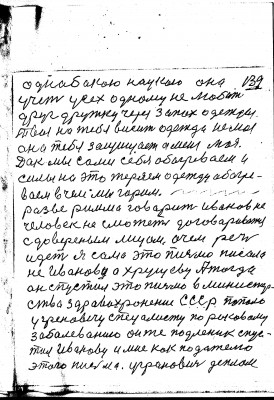 одна какою наукою она 139
учит усех одному не любит
друг дружку через запах одежды.
твоя на тебя висит одежда не моя
она тебя защищает а меня моя.
Дак мы сами себя обагреваем и
силы на это теряем одежду обагре-
ваем в чем мы горим.
разве римма говарит иванов не
человек не сможете договариватся
с довереным лицом, о чем речь
идет я сама это письмо писала
не Иванову а хрущеву А тогда
он спустил это письмо в министер-
ства здравохронение СССР попало
угреновичу специалисту по раковому
заболеванию он те подленик спус-
тил Иванову и мне как подателю
этого письма. угранович делом